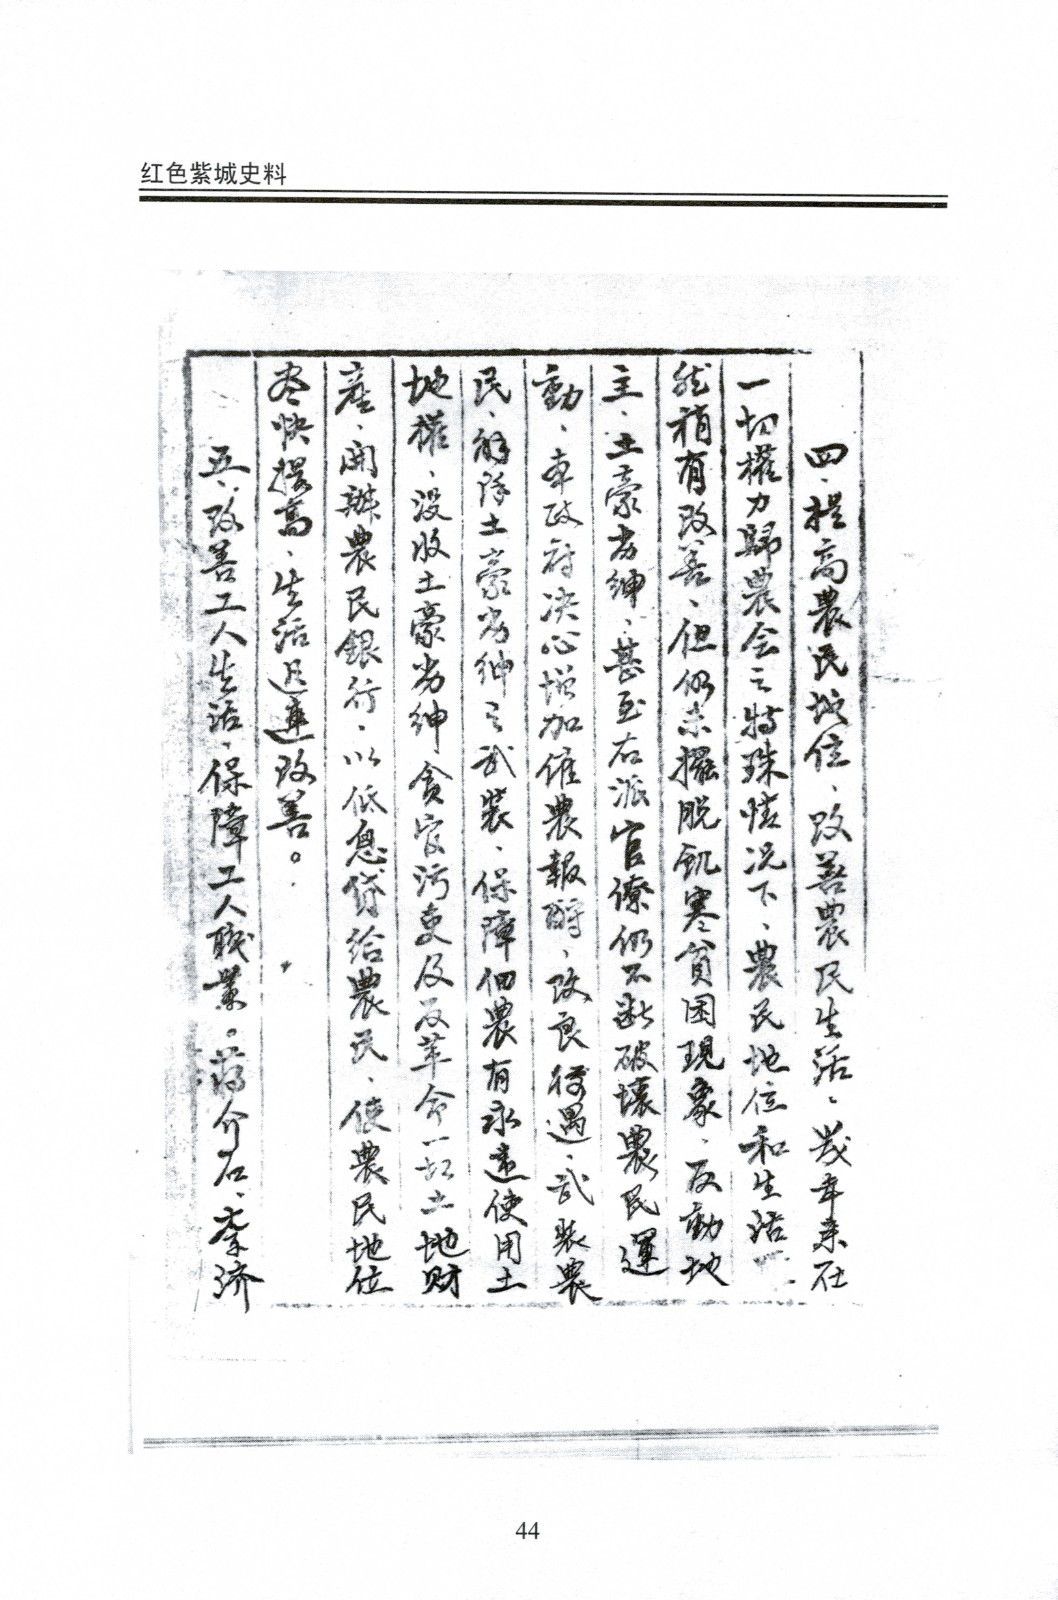 红色紫城史料
四、提高農民地位、改善農民生活、幾年來在
一切權力歸農会之特殊情况下、農民地位和生活、
然稍有改善、但仍未擺脱飢寒貧困現象、反動地
主、土豪劣紳、甚至右派官僚仍不断破壞農民運
動、本政府决心增加僱農報酧、改良待遇、武装農
民、解除土豪劣紳之武装、保障佃農有永遠使用土
地權、没收土豪劣紳、貪官污吏及反革命一切土地财
産、開辦農民銀行、以低息贷给農民、使農民地位
尽快提高、生活迅速改善。
五、改善工人生活、保障工人职業。蒋介石、李济
44